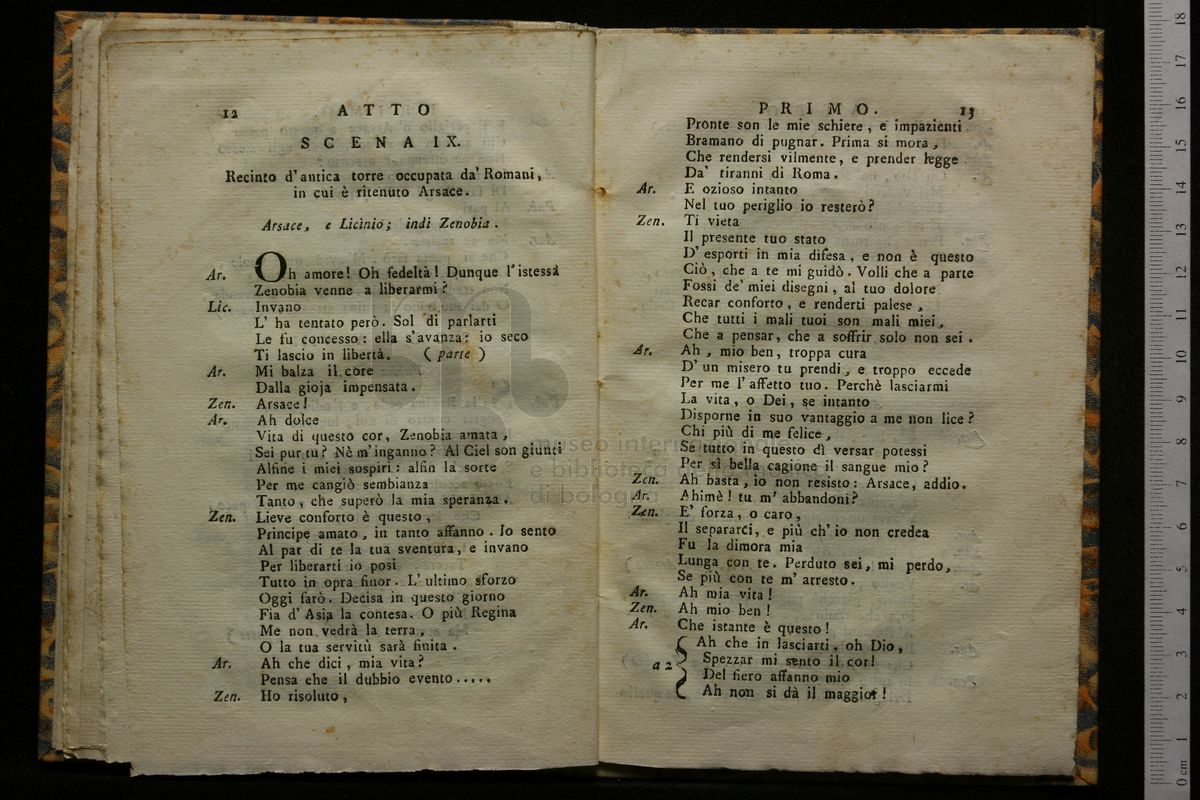 12 ATTO
SCENA IX.
Recinto d'antica torre occupata da' Romani,
in cui è ritenuto Arsace.
Arsace, e Licinio; indi Zenobia.
Ar. Oh amore! Oh fedeltà! Dunque l'istessa
Zenobia venne a liberarmi?
Lic. Invano
L' ha tentato però. Sol di parlarti
Le fu concesso: ella s'avanza: io seco
Ti lascio in libertà. (parte)
Ar. Mi balza il core
Dalla gioja impensata.
Zen. Arsace!
Ar. Ah dolce
Vita di questo cor, Zenobia amata,
Sei pur tu? Nè m'inganno? Al Ciel son giunti
Alfine i miei sospiri: alfin la sorte
Per me cangiò sembianza
Tanto, che superò la mia speranza.
Zen. Lieve conforto è questo,
Principe amato, in tanto affanno. Io sento
Al par di te la tua sventura, e invano
Per liberarti io posi
Tutto in opra finor. L'ultimo sforzo
Oggi farò. Decisa in questo giorno
Fia d' Asia la contesa. O più Regina
Me non vedrà la terra,
O la tua servitù sarà finita.
Ar. Ah che dici, mia vita?
Pensa che il dubbio evento.....
Zen. Ho risoluto,
PRIMO. 13
Pronte son le mie schiere, e impazienti
Bramano di pugnar. Prima si mora,
Che rendersi vilmente, e prender legge
Da' tiranni di Roma.
Ar. E ozioso intanto
Nel tuo periglio io resterò?
Zen. Ti vieta
Il presente tuo stato
D' esporti in mia difesa, e non è questo
Ciò, che a te mi guidò. Volli che a parte
Fossi de' miei disegni, al tuo dolore
Recar conforto, e renderti palese,
Che tutti i mali tuoi son mali miei,
Che a pensar, che a soffrir solo non sei.
Ar. Ah, mio ben, troppa cura
D' un misero tu prendi, e troppo eccede
Per me l'affetto tuo. Perchè lasciarmi
La vita, o Dei, se intanto
Disporne in suo vantaggio a me non lice?
Chi più di me felice,
Se tutto in questo dì versar potessi
Per sì bella cagione il sangue mio?
Zen. Ah basta, io non resisto: Arsace, addio.
Ar. Ahimè! tu m' abbandoni?
Zen. E' forza, o caro,
Il separarci, e più ch' io non credea
Fu la dimora mia
Lunga con te. Perduto sei, mi perdo,
Se più con te m' arresto.
Ar. Ah mia vita!
Zen. Ah mio ben!
Ar. Che istante è questo!
Ah che in lasciarti, oh Dio,
a 2 Spezzar mi sento il cor!
Del fiero affanno mio
Ah non si dà il maggior!
museo internazionale
e biblioteca
di bologna
0 cm 1 2 3 4 5 6 7 8 9 10 11 12 13 14 15 16 17 18